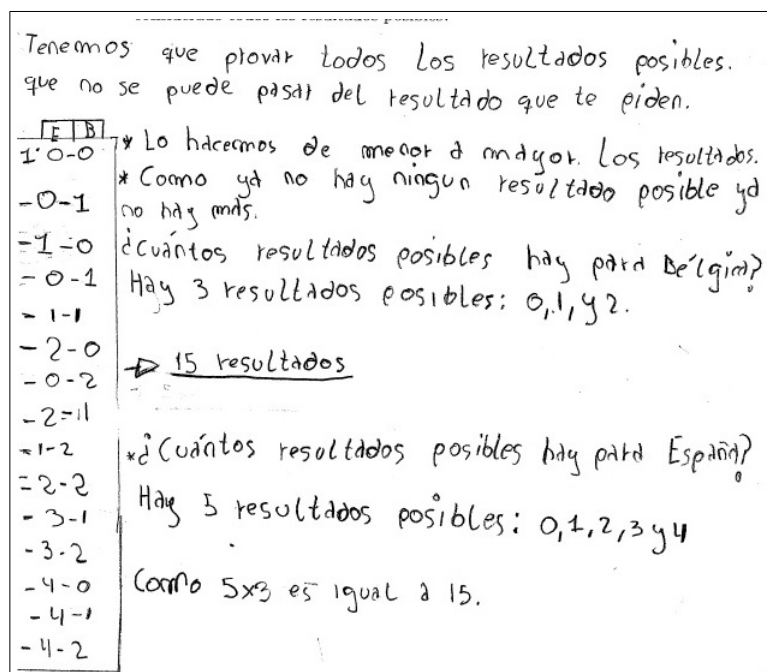 Tenemos que provar todos los resultados posibles.
que no se puede pasar del resultado que te piden.
E B
1. 0-0
-0-1
-1-0
-0-1
-1-1
-2-0
-0-2
-2-1
-1-2
-2-2
-3-1
-3-2
-4-0
-4-1
-4-2
* Lo hacemos de menor a mayor. Los resultados.
* Como ya no hay ningun resultado posible ya
no hay mas.
¿Cuántos resultados posibles hay para Bélgica?
Hay 3 resultados posibles: 0, 1, y 2.
→ 15 resultados
*¿Cuántos resultados posibles hay para España?
Hay 5 resultados posibles: 0, 1, 2, 3 y 4
Como 5x3 es igual a 15.